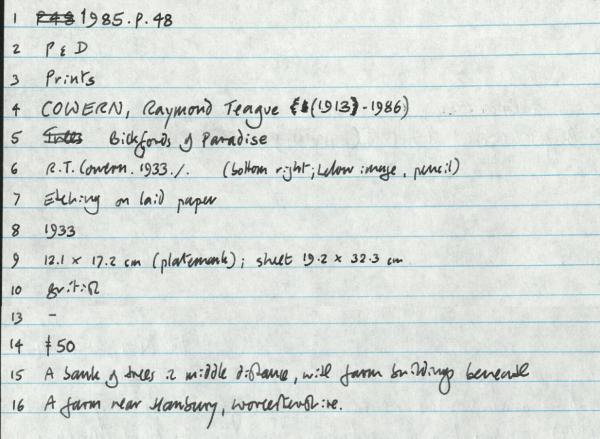 1 P48 1985.P.48
2 P & D
3 Prints
4 COWERN, Raymond Teague (1913-1986)
5 Trees Bickfords of Paradise
6 R.T. Cowern. 1933./. (bottom right; below image, pencil)
7 Etching on laid paper
8 1933
9 12.1 x 17.2 cm (platemark); sheet 19.2 x 32.3 cm
10 British
13 -
14 £50
15 A bank of trees in middle distance, with farm buildings beneath
16 A farm near Hanbury, Worcestershire.